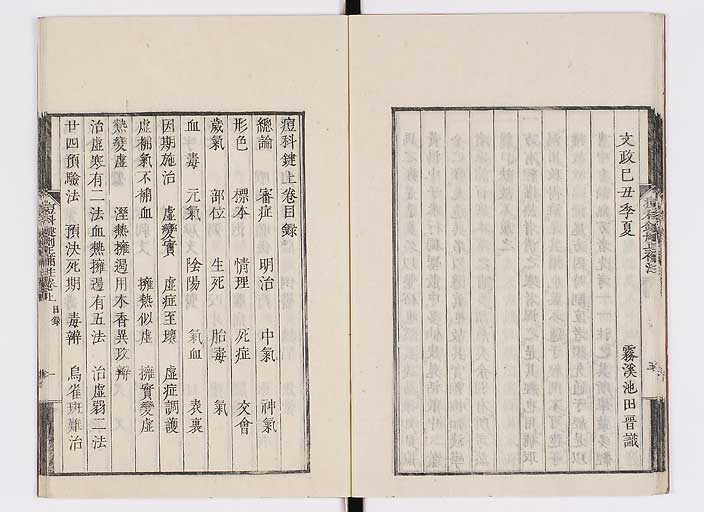 文政己丑季夏
霧溪池田晉識
痘科鍵上卷目錄
總論 審症 明治 中氣 神氣
形色 標本 情理 死症 交會
歲氣 部位 生死 胎毒 氣
血毒 元氣 陰陽 氣血 表裏
因期施治 虛變實 虛症至壞 虛症調護
虛補氣不補血 擁熱似虛 擁實變虛
熱變虛 溼熱擁遏用木香異攻辨
治虛寒有二法血熱擁遏有五法 治虛弱二法
廿四預驗法 預決死期 毒辨 烏雀斑難治
目錄